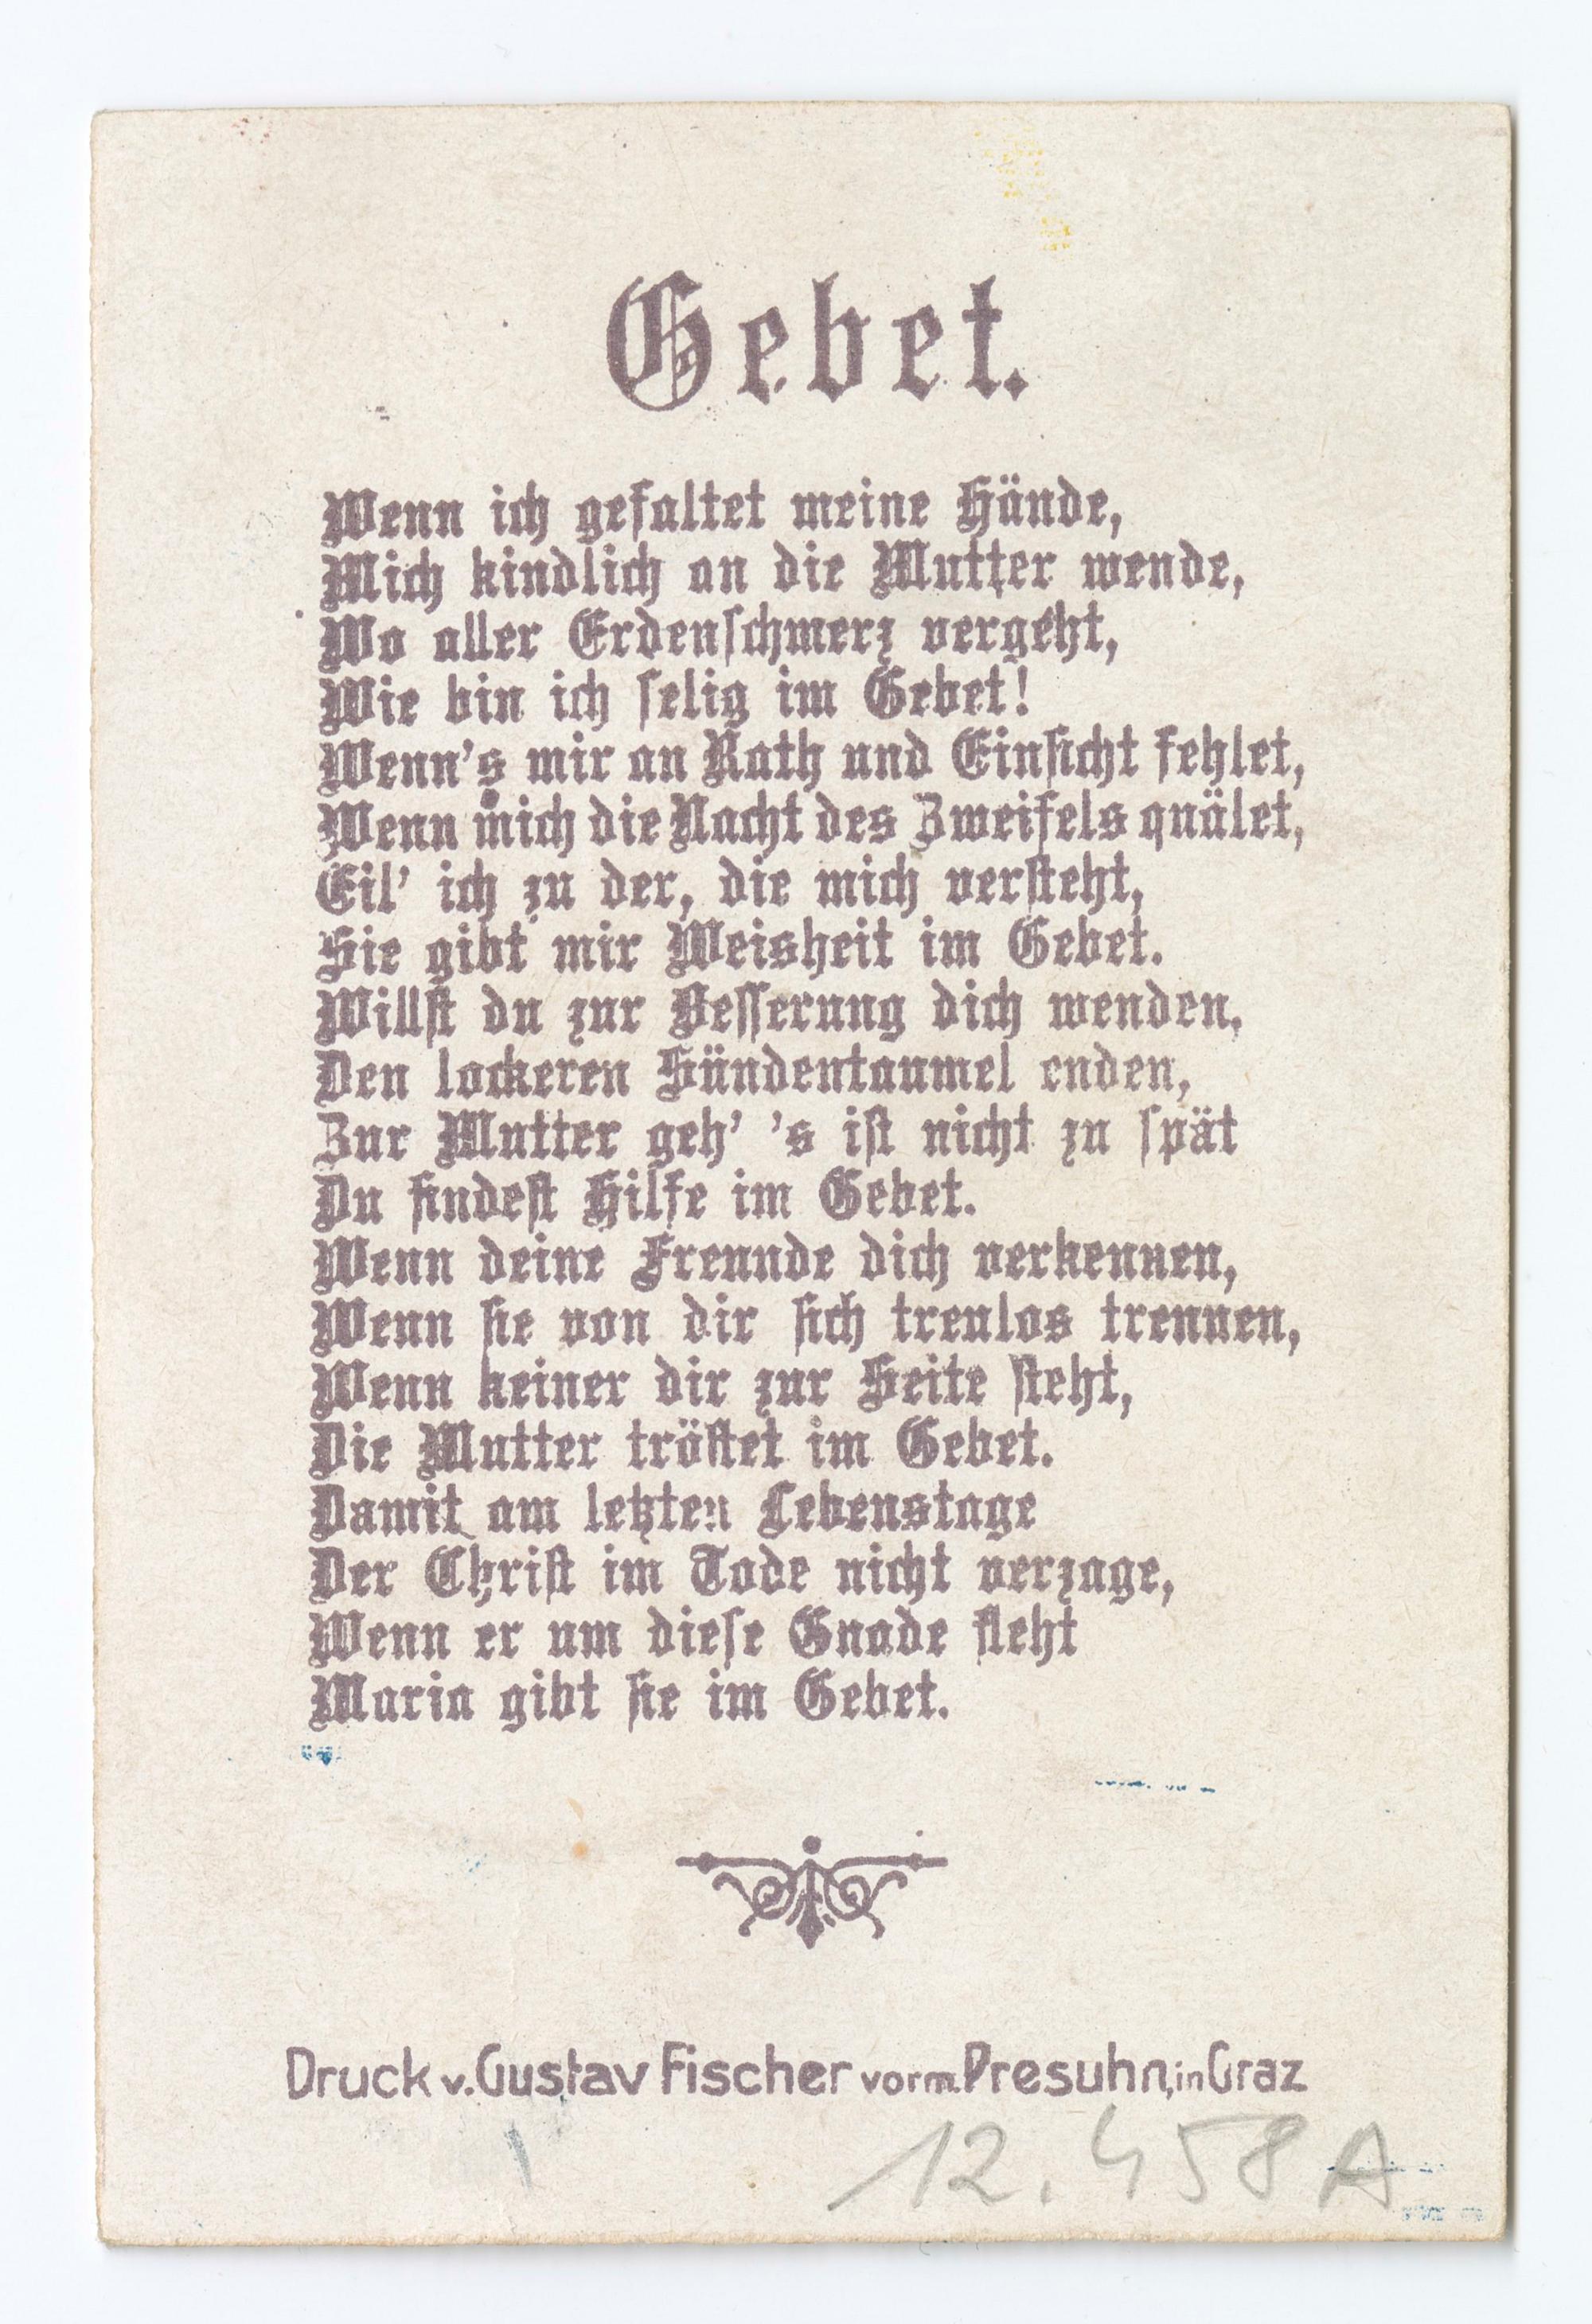 Gebet.
Wenn ich gefaltet meine Hände,
Mich kindlich an die Mutter wende,
Wo aller Erdenschmerz vergeht,
Wie bin ich selig im Gebet!
Wenn's mir an Rath und Einsicht fehlet,
Wenn mich die Nacht des Zweifels quälet,
Eil' ich zu der, die mich versteht,
Sie gibt mir Weisheit im Gebet.
Willst du zur Besserung dich wenden,
Den lockeren Sündentaumel enden,
Zur Mutter geh' 's ist nicht zu spät
Du findest Hilfe im Gebet.
Wenn deine Freunde dich verkennen,
Wenn sie von dir sich treulos trennen,
Wenn keiner dir zur Seite steht,
Die Mutter tröstet im Gebet.
Damit am letzten Lebenstage
Der Christ im Tode nicht verzage,
Wenn er um diese Gnade fleht
Maria gibt sie im Gebet.
Druck v. Gustav Fischer vorm. Presuhn, in Graz
12.458 A